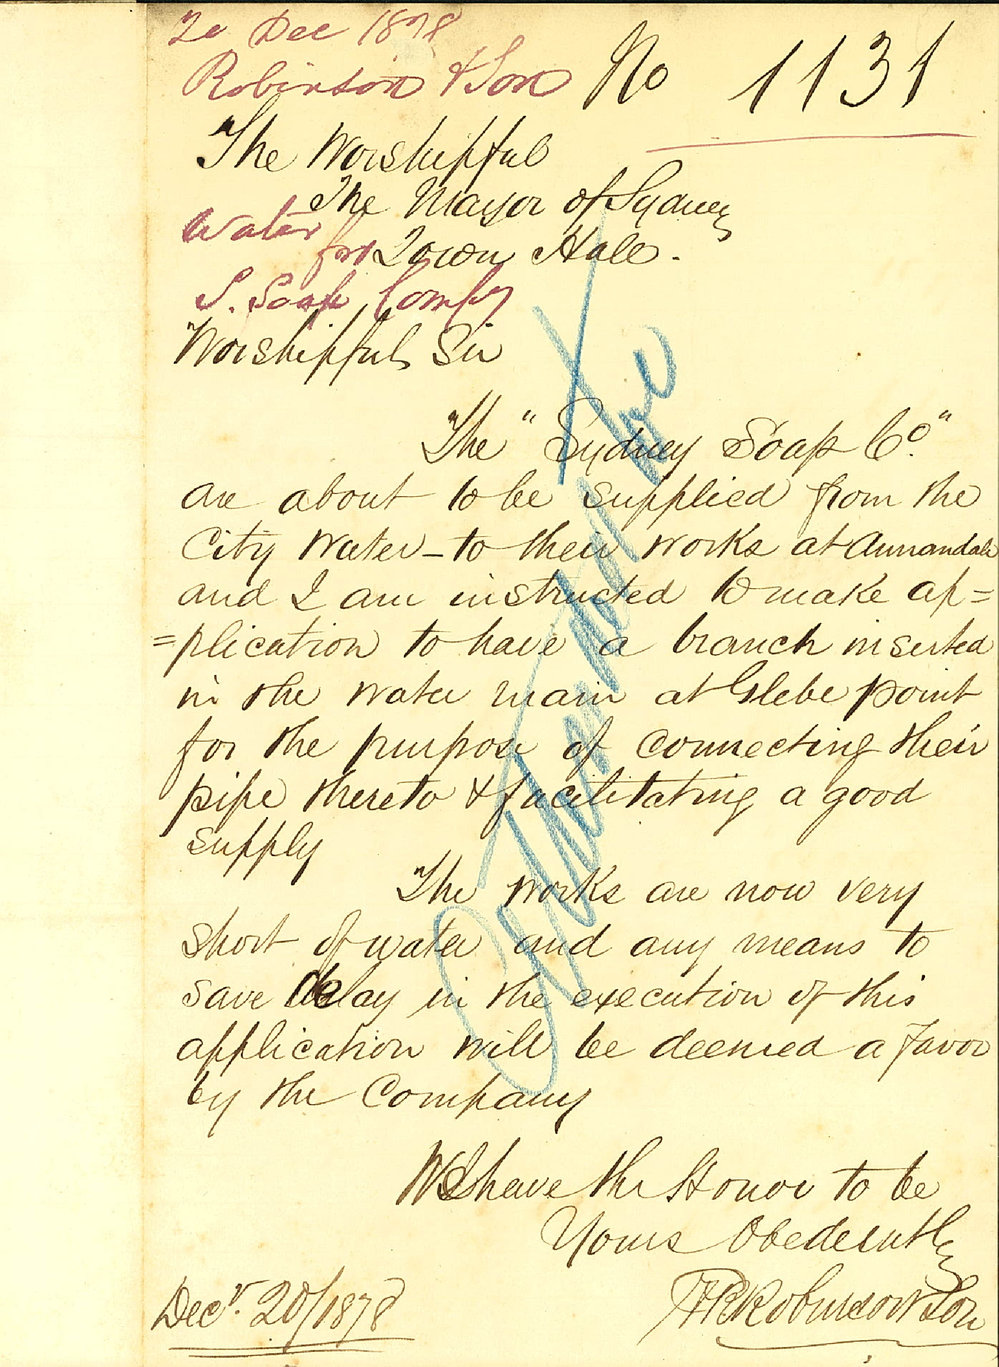 20 Dec 1878
Robinson & Son No 1131
The Worshipful
The Mayor of Sydney
Water
for Town Hall.
S. Soap Compy
Worshipful Sir
The "Sydney Soap Co."
are about to be supplied from the
City Water - to their works at Annandale
and I am instructed to make ap=
=plication to have a branch inserted
in the water main at Glebe point
for the purpose of connecting their
pipe thereto & facilitating a good
supply
The works are now very
short of water and any means to
save delay in the execution of this
application will be deemed a favor
by the Company
We have the Honor to be
Yours Obediently
Robinson & Son
Decr. 20/1878